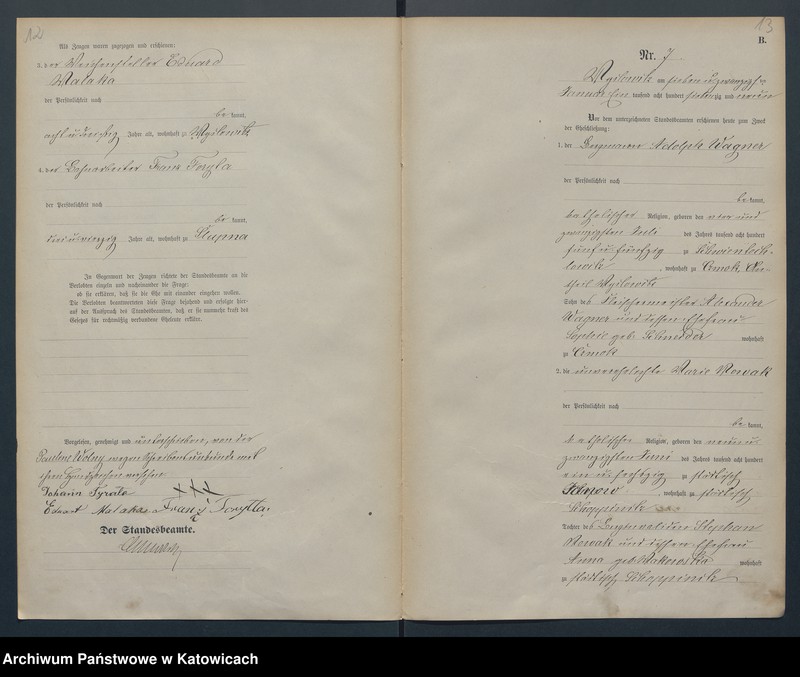 12
Als Zeugen waren zugezogen und erschienen:
3. der Weichensteller Eduard
Malaka
der Persönlichkeit nach
be kannt,
acht u dreißig Jahre alt, wohnhaft zu Myslowitz
4. der Bahnarbeiter Franz Toryla
der Persönlichkeit nach
be kannt,
drei u vierzig Jahre alt, wohnhaft zu Slupna
In Gegenwart der Zeugen richtete der Standesbeamte an die
Verlobten einzeln und nacheinander die Frage:
ob sie erklären, daß sie die Ehe mit einander eingehen wollen.
Die Verlobten beantworteten diese Frage bejahend und erfolgte hier-
auf der Ausspruch des Standesbeamten, daß er sie nunmehr kraft des
Gesetzes für rechtmäßig verbundene Eheleute erkläre.
Vorgelesen, genehmigt und unterschrieben, von der
Paulene Wolny wegen Schreibensunkunde mit
ihren Handzeichen versehen
Johann Pyrata +++
Eduart Malaka Franz Torylla
Der Standesbeamte.
13
B.
Nr. 7
Myslowitz am sieben u zwanzigsten
Januar Ein tausend acht hundert siebenzig und neun
Vor dem unterzeichneten Standesbeamten erschienen heute zum Zweck
der Eheschließung:
1. der Bergmann Adolph Wagner
der Persönlichkeit nach
be kannt,
katholischer Religion, geboren den vier und
zwanzigsten Juli des Jahres tausend acht hundert
fünf u fünfzig zu Schwientoch-
lowitz, wohnhaft zu Cmok An-
theil Myslowitz
Sohn des Fleischermeister Alexander
Wagner und dessen Ehefrau
Sophie geb. Schneider wohnhaft
zu Cmok
2. die unverehelichte Marie Nowak
der Persönlichkeit nach
be kannt,
katholischer Religion, geboren den neun u
zwanzigsten Juni des Jahres tausend acht hundert
ein u sechszig zu städtisch
Janow, wohnhaft zu städtisch
Schoppinitz
Tochter des Berginvaliden Stephan
Nowak und dessen Ehefrau
Anna geb. Makowska wohnhaft
zu städtisch Schoppinitz
Archiwum Państwowe w Katowicach